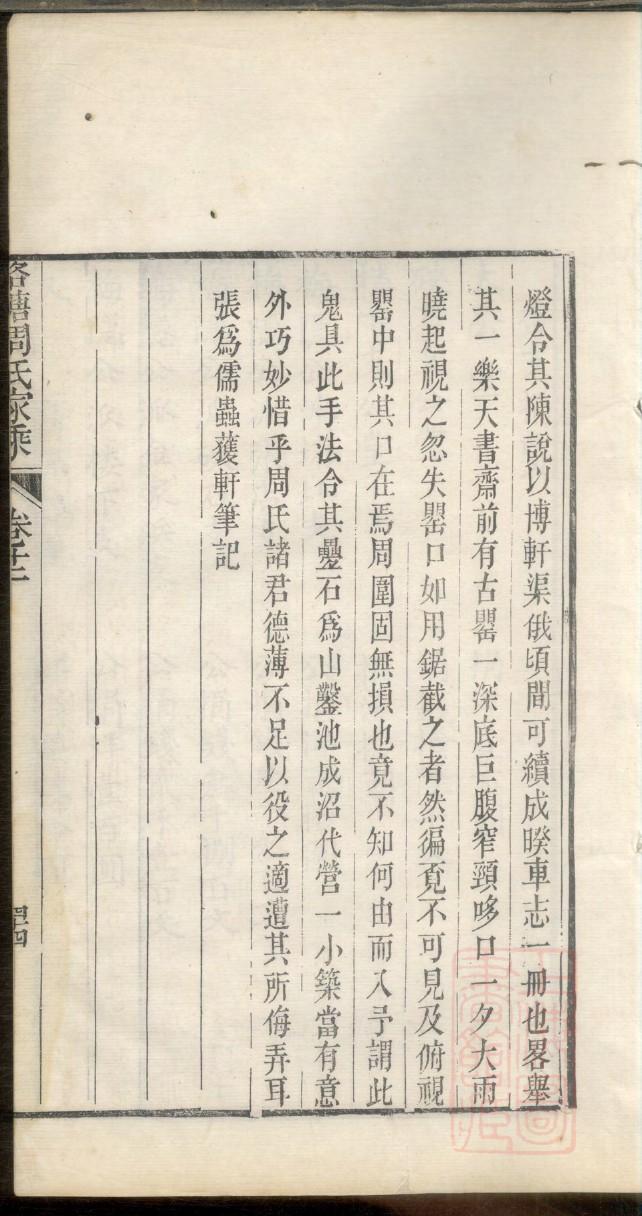 燈令其陳說以博軒渠俄頃間可續成暌車志一冊也畧舉
其一樂天書齋前有古罌一深底巨腹窄頸哆口一夕大雨
曉起視之忽失罌口如用鋸截之者然徧覓不可見及俯視
罌中則其口在焉周圍固無損也竟不知何由而入予謂此
鬼具此手法令其疊石爲山鑿池成沼代營一小築當有意
外巧妙惜乎周氏諸君德薄不足以役之適遭其所侮弄耳
張爲儒蟲蠖軒筆記
周氏家乘